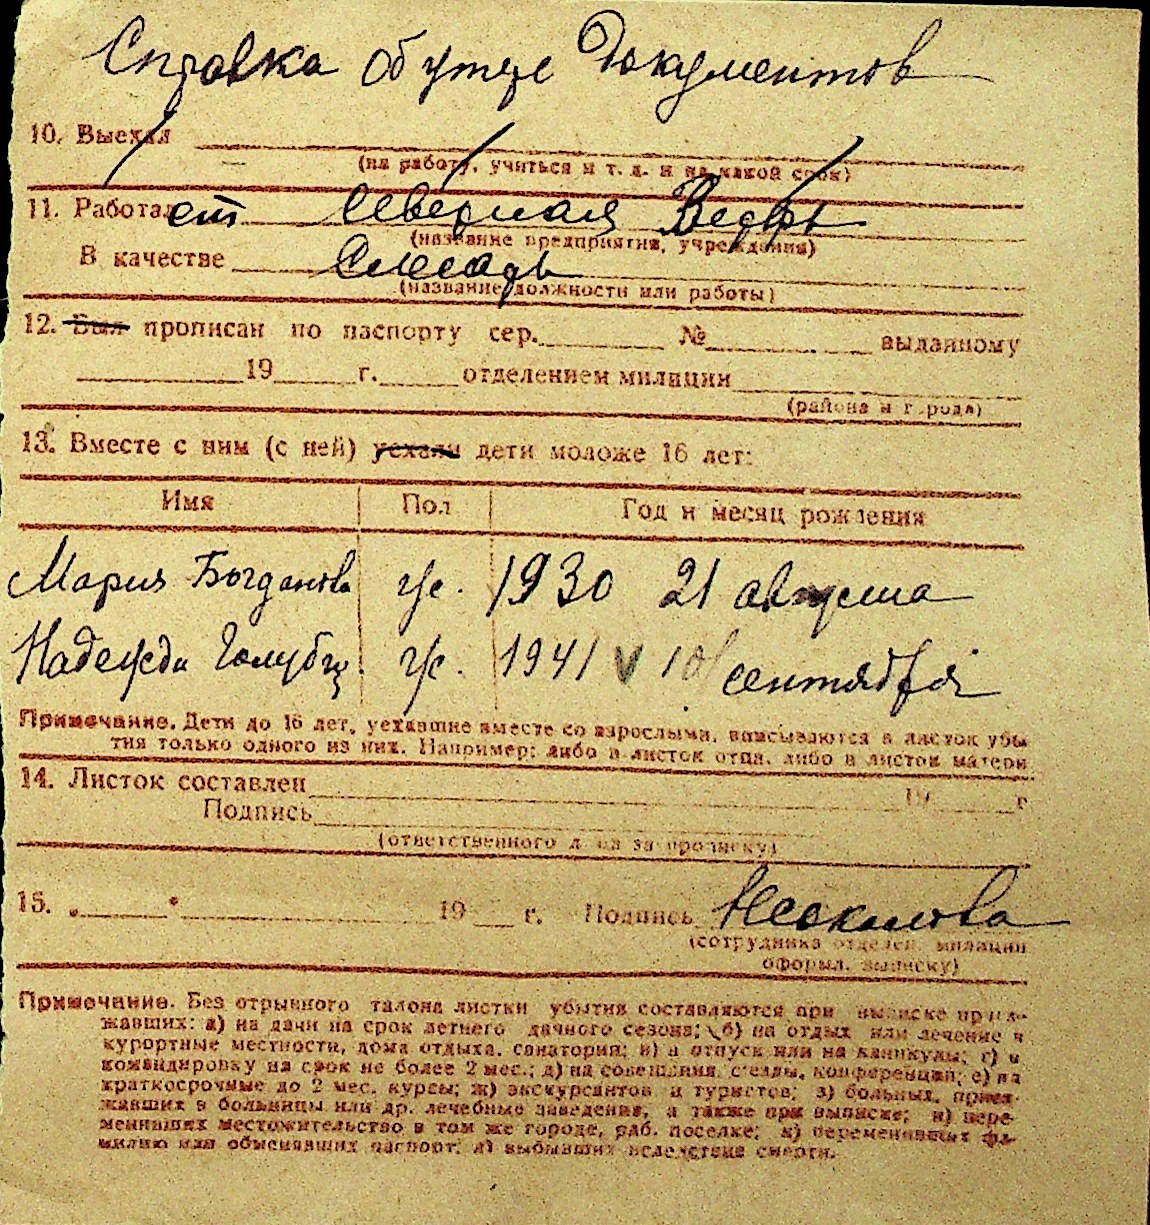 Справка об утере Документов
10. Выехал
(на работу, учиться и т. д. и на какой срок)
11. Работал ст Северная Верфь
(название предприятия, учреждения)
В качестве Слесарь
(название должности или работы)
12. Был прописан по паспорту сер. № выданному
19 г. отделением милиции
(района и города)
13. Вместе с ним (с ней) уехали дети моложе 16 лет:
Имя Пол Год и месяц рождения
Мария Богданова ж. 1930 21 августа
Надежда Голубц. ж. 1941 V 10 сентября
Примечание. Дети до 16 лет, уехавшие вместе со взрослыми, вписываются в листок убы
тия только одного из них. Например: либо в листок отца, либо в листок матери
14. Листок составлен 19 г
Подпись
(ответственного лица за прописку)
15. „ " 19 г. Подпись
(сотрудника отделен. милиции
оформл. выписку)
Примечание. Без отрывного талона листки убытия составляются при выписке приез-
жавших: а) на дачи на срок летнего дачного сезона; б) на отдых или лечение в
курортные местности, дома отдыха, санатории; в) в отпуск или на каникулы; г) в
командировку на срок не более 2 мес.; д) на совещания, съезды, конференции; е) на
краткосрочные до 2 мес. курсы; ж) экскурсантов и туристов; з) больных, приез-
жавших в больницы или др. лечебные заведения, а также при выписке; и) пере-
менивших местожительство в том же городе, раб. поселке; к) переменивших фа-
милию или обменявших паспорт; л) выбывших вследствие смерти.